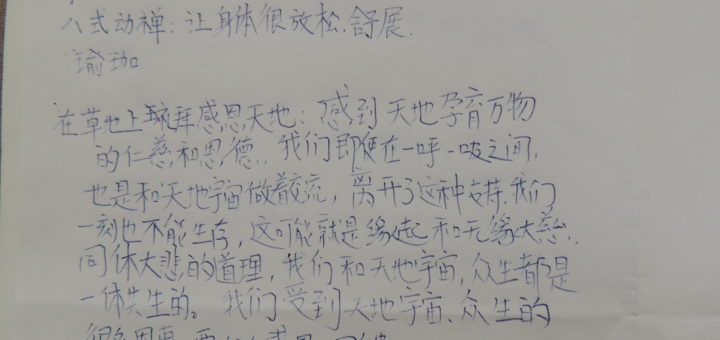 八式动禅：让身体很放松、舒展．
瑜珈
在草地上跪拜感恩天地：感到天地孕育万物
的仁慈和恩德．我们即使在一呼一吸之间，
也是和天地宇宙做着交流，离开了这种支持，我们
一刻也不能生存，这可能就是缘起和无缘大慈，
同体大悲的道理，我们和天地宇宙，众生都是
一体共生的。我们受到天地宇宙、众生的